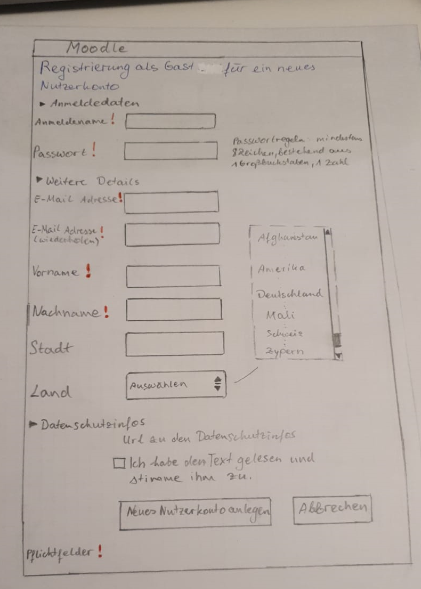 Moodle
Registrierung als Gast für ein neues
Nutzerkonto
▸ Anmeldedaten
Anmeldename!
Passwort!
Passwortregeln: mindestens
8 Zeichen, bestehend aus
1 Großbuchstaben, 1 Zahl
▸ Weitere Details
E-Mail Adresse!
E-Mail Adresse!
(wiederholen)
Vorname!
Nachname!
Stadt
Land
Auswählen
Afghanistan
Amerika
Deutschland
Mali
Schweiz
Zypern
▸ Datenschutzinfos
Url zu den Datenschutzinfos
Ich habe den Text gelesen und
stimme ihm zu.
Neues Nutzerkonto anlegen
Abbrechen
Pflichtfelder!